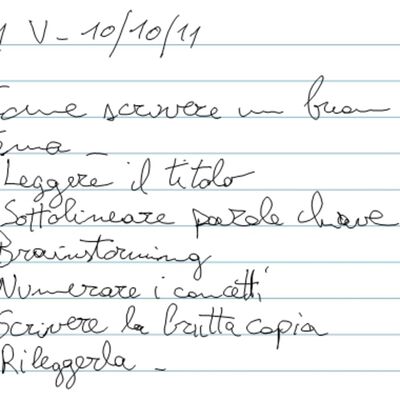 1 V - 10/10/11
Come scrivere un buon
tema -
Leggere il titolo
Sottolineare parole chiave
Brainstorming
Numerare i concetti
Scrivere la brutta copia
Rileggerla -